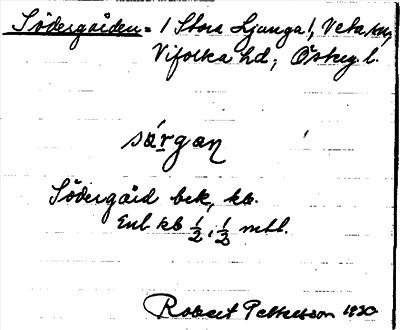 Södergården = / Stora Ljunga /, Veta sn,
Vifolka hd, Österg. l.
sörgan
Södergård bek, kb.
Enl kb 1/2, 1/3 mtl.
Robert Pettersson 1930